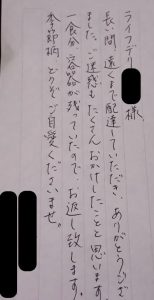 ライフデリ 様
長い間、遠くまで配達していただき、ありがとうござ
ました。ご迷惑もたくさんおかけしたことと思います。
一食分、容器が残っていたので、お返し致します。
季節柄、どうぞご自愛くださいませ。